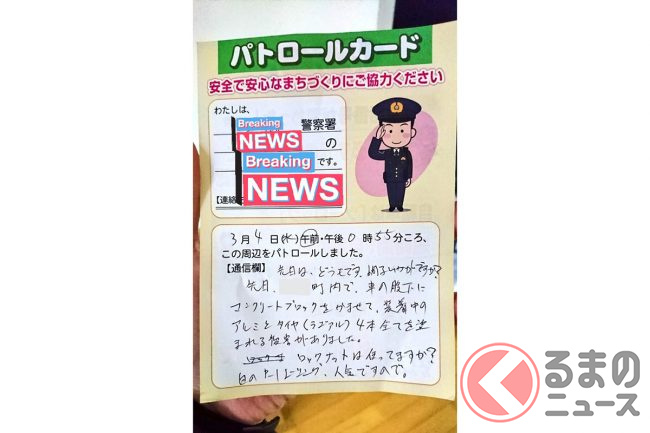 パトロールカード
安全で安心なまちづくりにご協力ください
わたしは、
Breaking
NEWS
警察署
の
Breaking
NEWS
です。
【連絡
3月4日(水)午前・午後0時55分ころ、
この周辺をパトロールしました。
【通信欄】 先日は、どうもです。調子いかがですか?
先日、 町内で、車の股下に
コンクリートブロックをかませて、装着中の
アルミとタイヤ(ラジアル)4本全てを盗
まれる被害がありました。
ロックナットは使ってますか?
白の 、人気ですので。
くるまの
ニュース